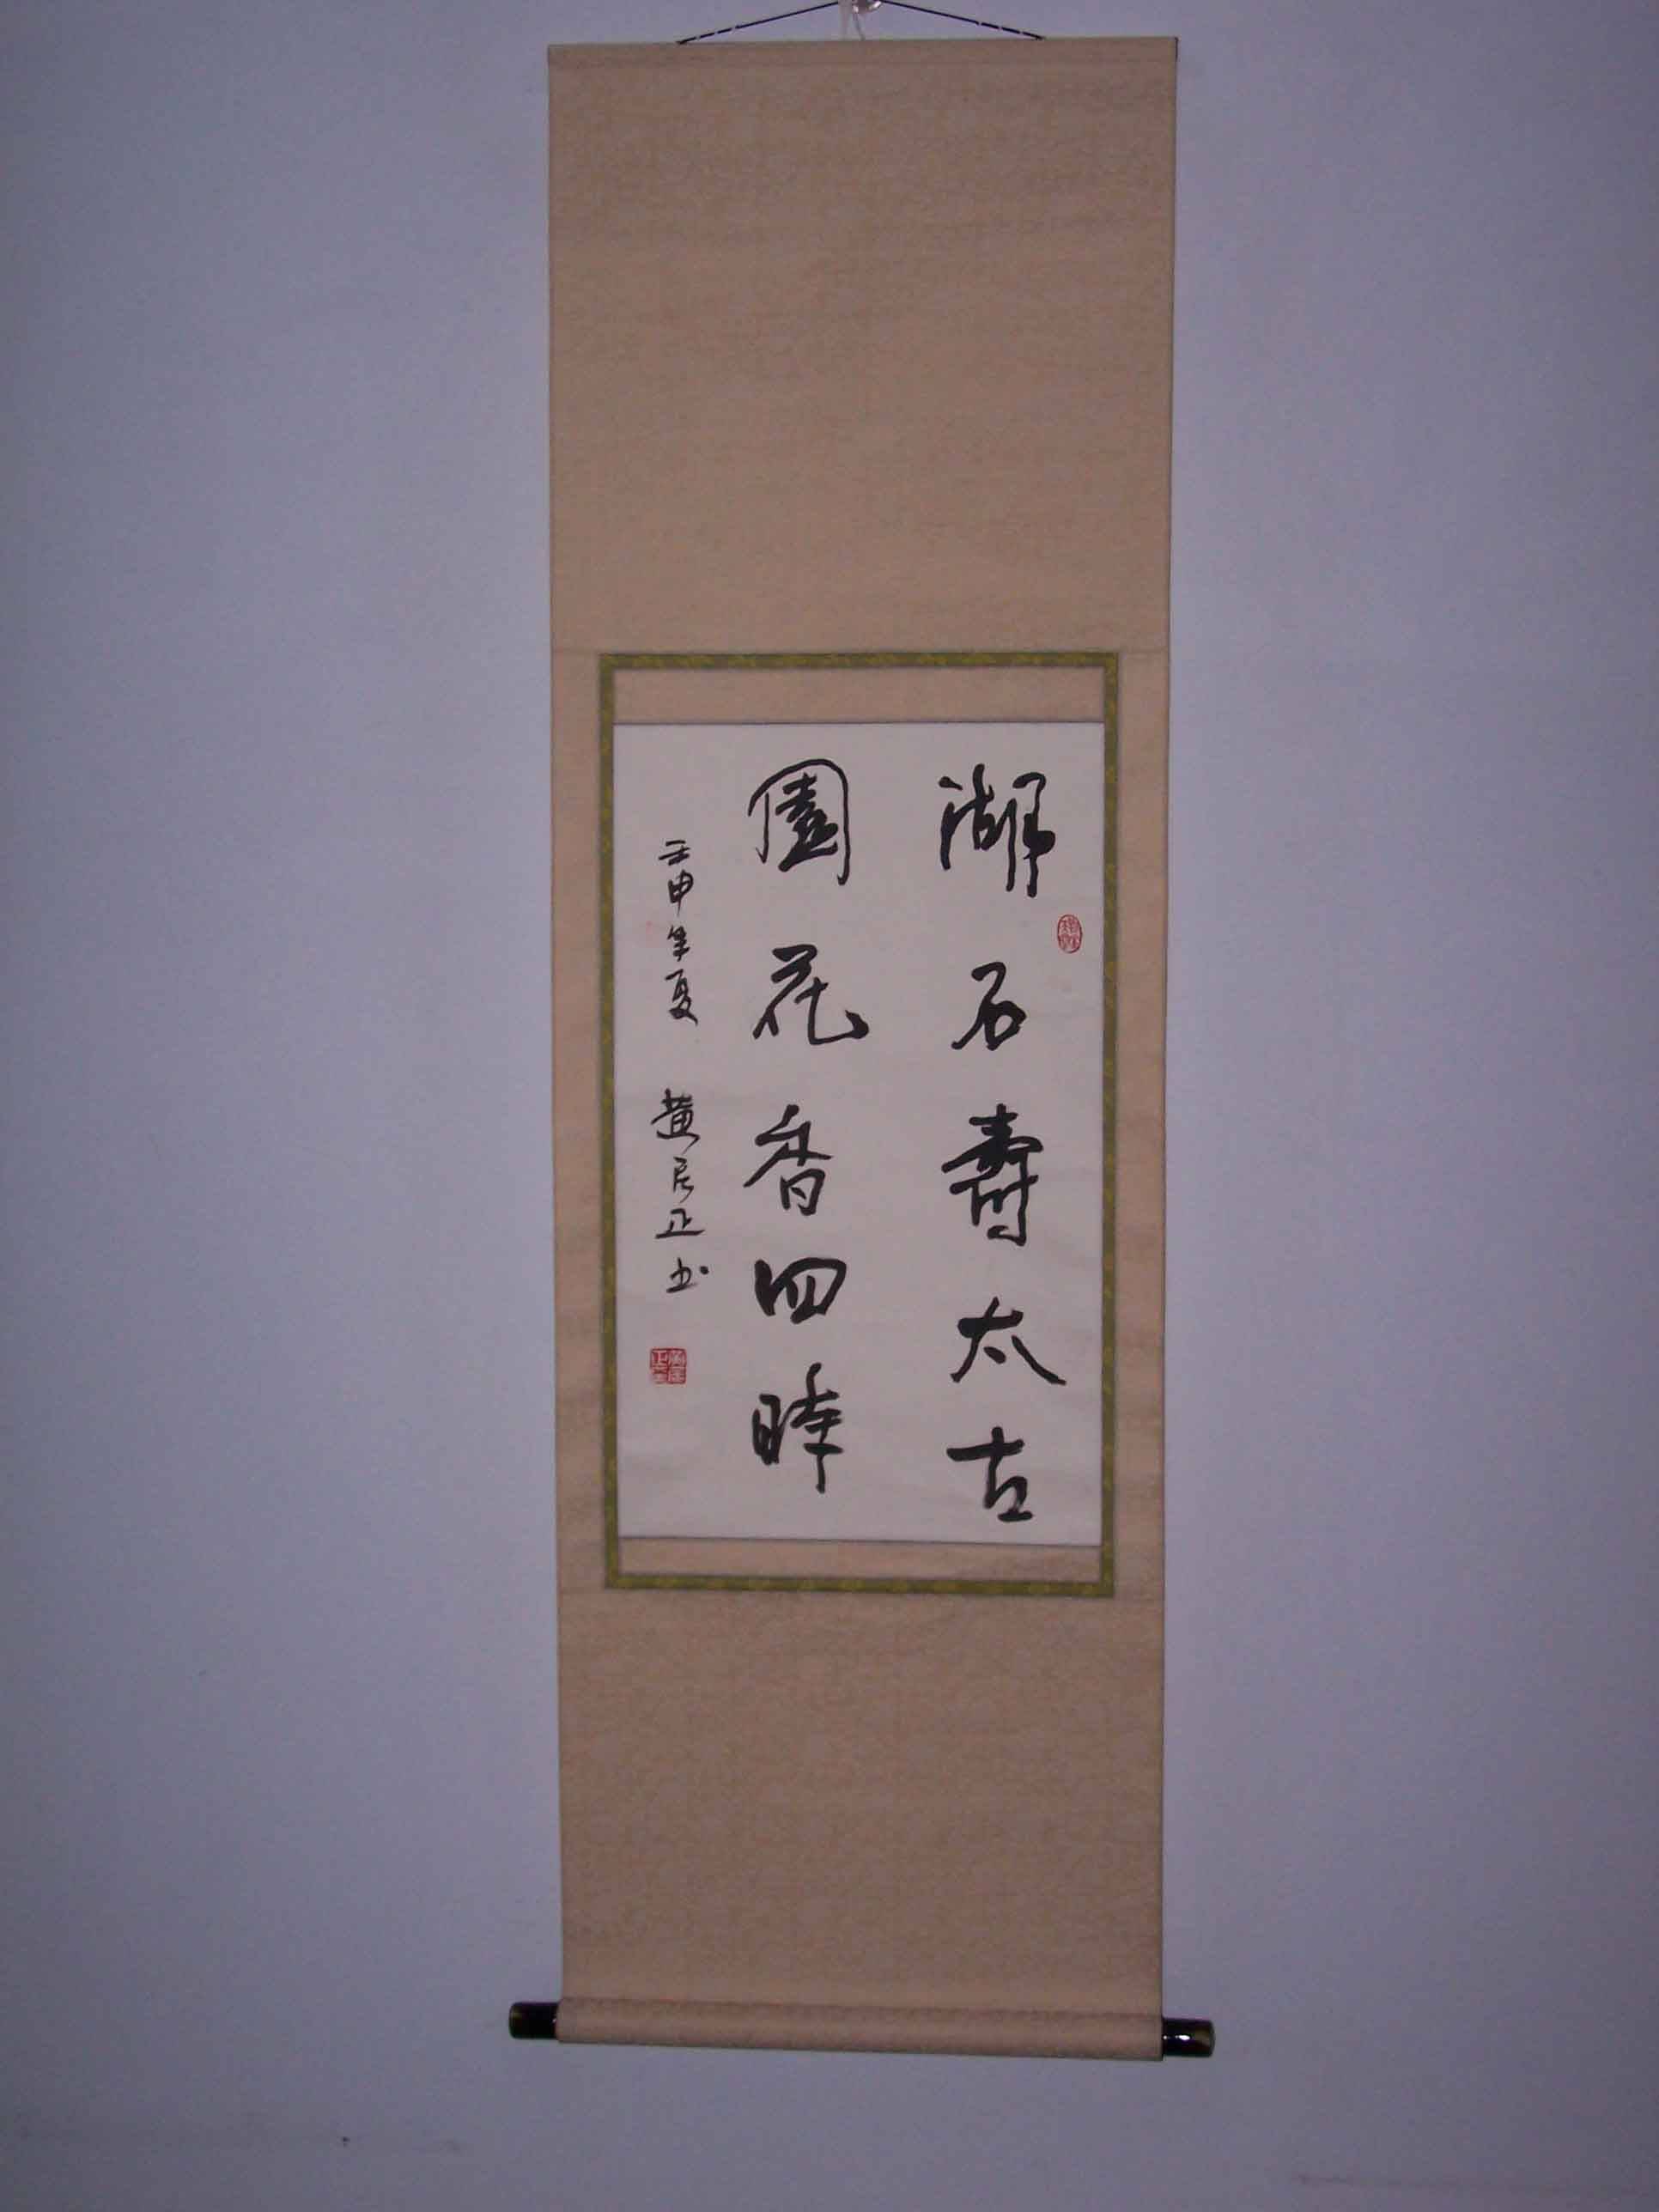 湖石壽太古
園花香四時
壬申年夏 黄居正书